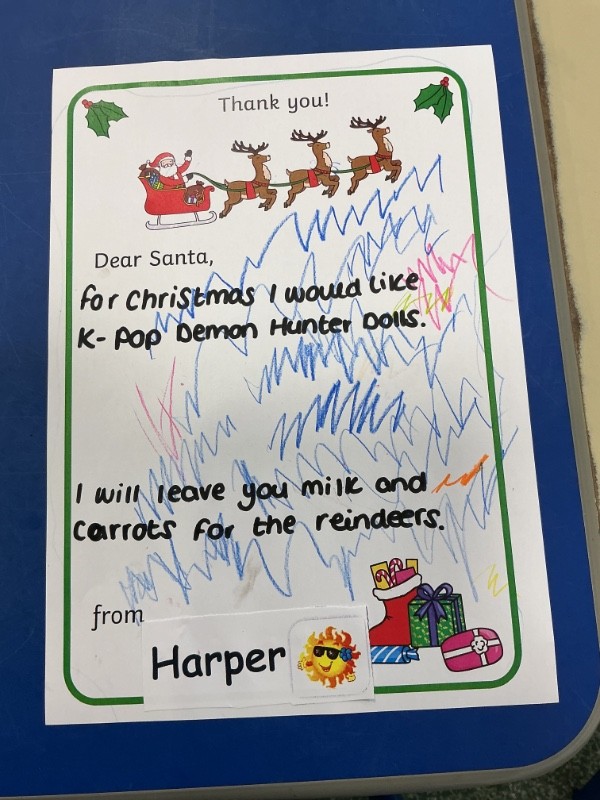 Thank you!
Dear Santa,
for Christmas I would like
K-Pop Demon Hunter Dolls.
I will leave you milk and
carrots for the reindeers.
from
Harper